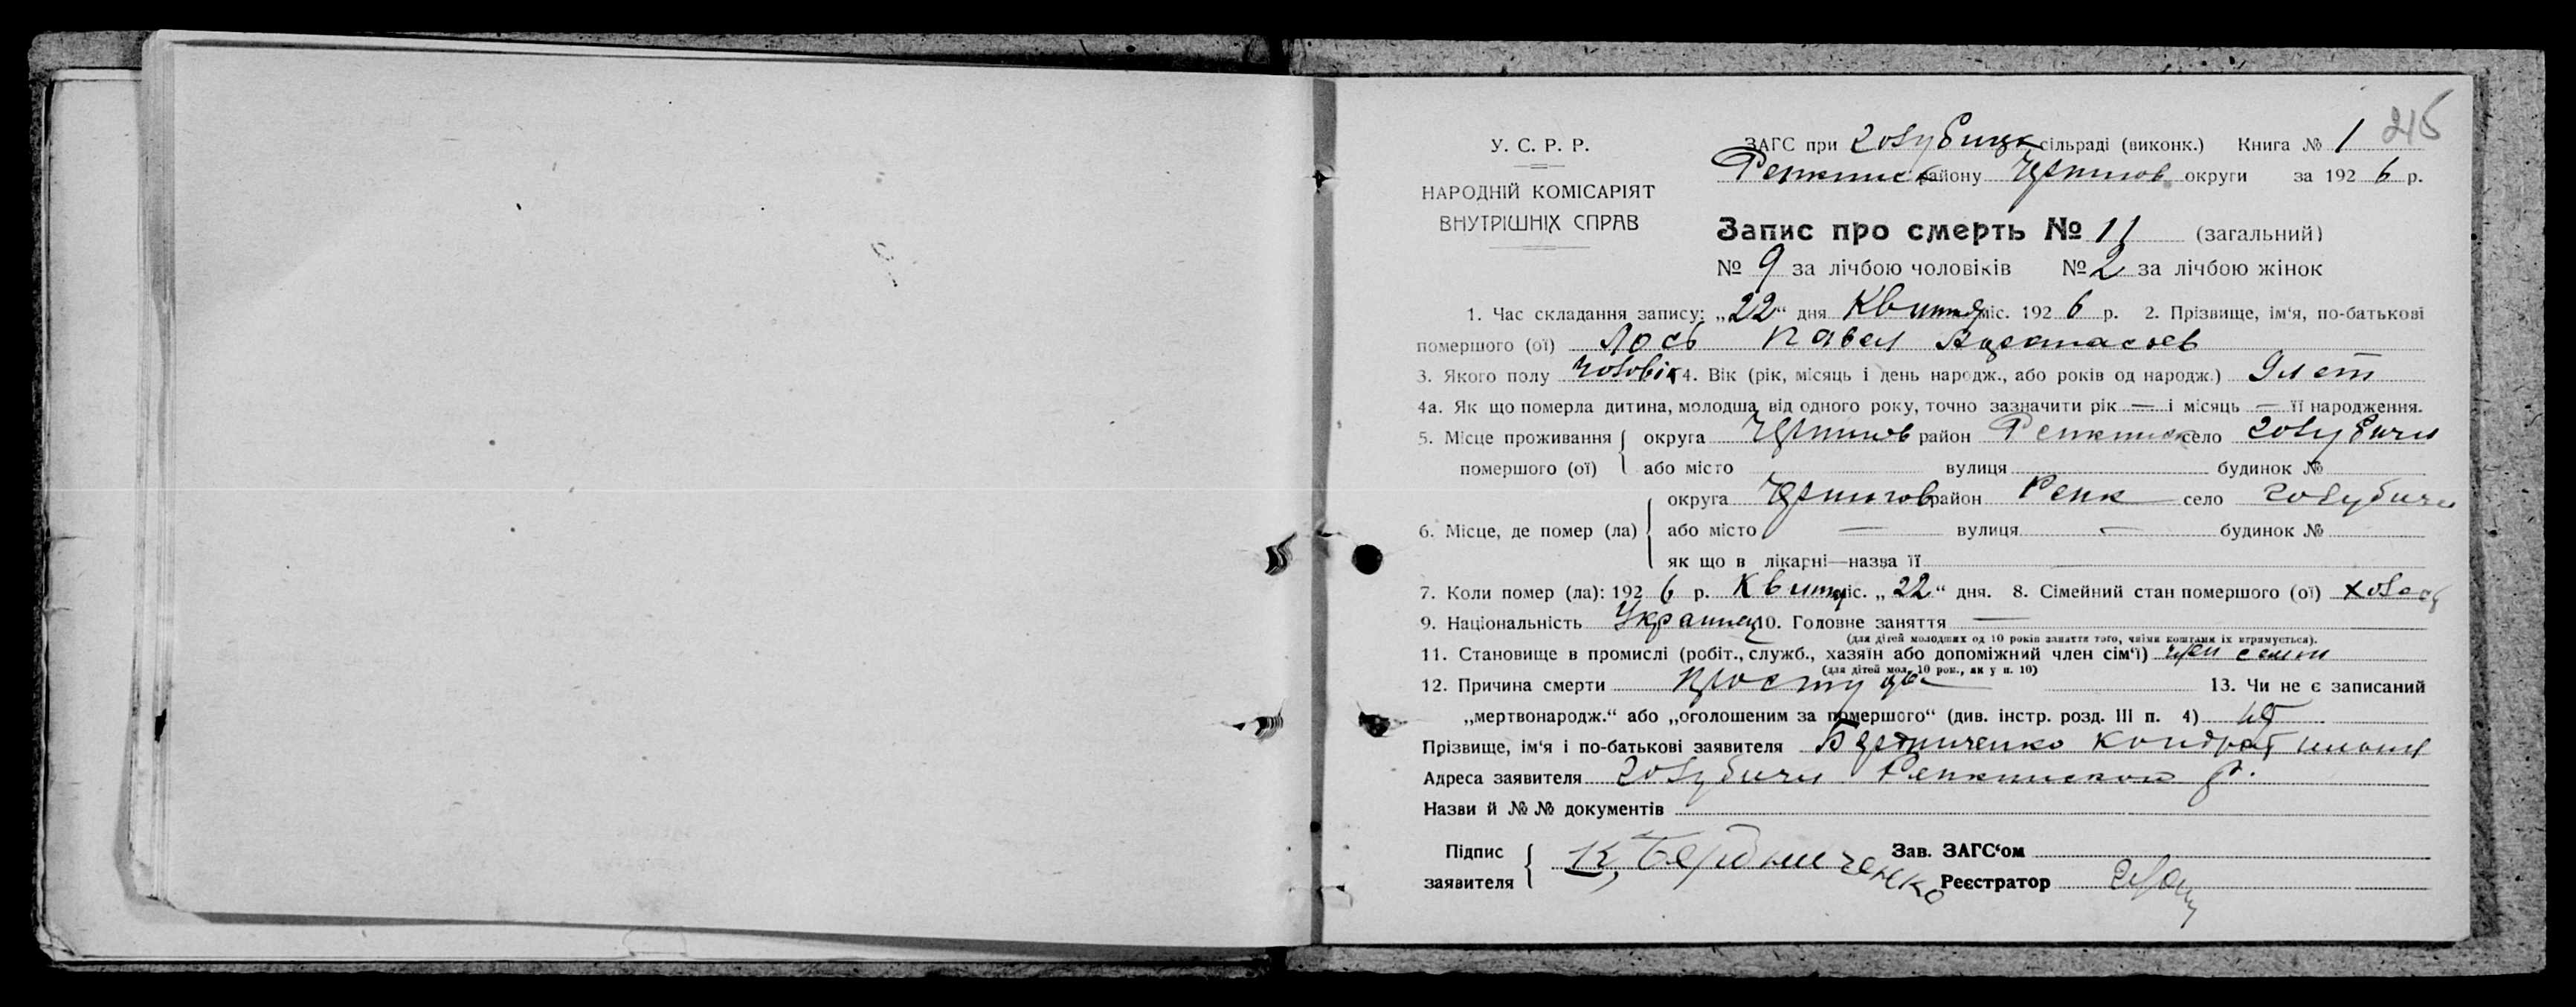 215
У. С. Р. Р.
НАРОДНІЙ КОМІСАРІЯТ
ВНУТРІШНІХ СПРАВ
ЗАГС при Голубицк сільраді (виконк.) Книга № 1
Репкинск району Чернигов округи за 1926 р.
Запис про смерть № 11 (загальний)
№ 9 за лічбою чоловіків № 2 за лічбою жінок
1. Час складання запису: „22“ дня Квитня міс. 1926 р. 2. Прізвище, ім‘я, по-батькові
помершого (ої) Лось Павел Афанасьев
3. Якого полу Чоловік 4. Вік (рік, місяць і день народж., або років од народж.) 9 лет
4а. Як що померла дитина, молодша від одного року, точно зазначити рік — і місяць — її народження.
5. Місце проживання помершого (ої) округа Чернигов район Репкинск село Голубичи
або місто вулиця будинок №
6. Місце, де помер (ла) округа Чернигов район Репк село Голубичи
або місто — вулиця — будинок №
як що в лікарні—назва її
7. Коли помер (ла): 1926 р. Квитня міс. „22“ дня. 8. Сімейний стан помершого (ої) холост
9. Національність Украинец 10. Головне заняття —
(для дітей молодших од 10 років заняття того, чиїми коштами їх втримується).
11. Становище в промислі (робіт., служб., хазяїн або допоміжний член сім‘ї) член семи
(для дітей мол. 10 рок., як у п. 10)
12. Причина смерти простуда 13. Чи не є записаний
„мертвонародж.“ або „оголошеним за помершого“ (див. інстр. розд. III п. 4) нет
Прізвище, ім‘я і по-батькові заявителя Бердниченко Кондрат
Адреса заявителя Голубичи Репкинской р.
Назви й № № документів
Підпис заявителя К. Бердниченко Зав. ЗАГС‘ом
Реєстратор